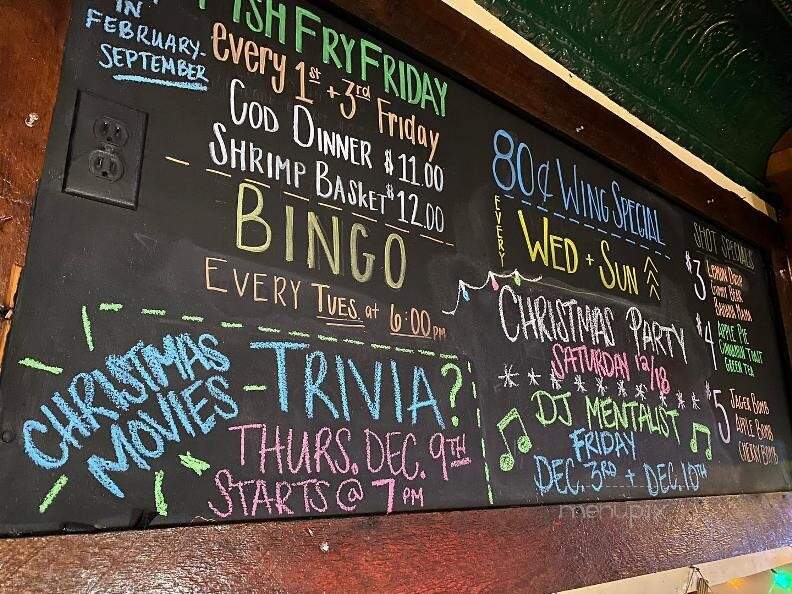 IN
FEBRUARY-
SEPTEMBER
FISH FRY FRIDAY
every 1st + 3rd Friday
COD DINNER $11.00
SHRIMP BASKET $12.00
BINGO
EVERY TUES. at 6:00 PM
CHRISTMAS
MOVIES - TRIVIA?
THURS. DEC. 9TH
STARTS @ 7 PM
80¢ WING SPECIAL
EVERY
WED + SUN
CHRISTMAS PARTY
SATURDAY 12/18
DJ MENTALIST
FRIDAY
DEC. 3RD + DEC. 10TH
SHOT SPECIALS
$3
LEMON DROP
GUMMY BEAR
BANANA MAMA
$4
APPLE PIE
CINNAMON TOAST
GREEN TEA
$5
JAGER BOMB
APPLE BOMB
CHERRY BOMB
menupix